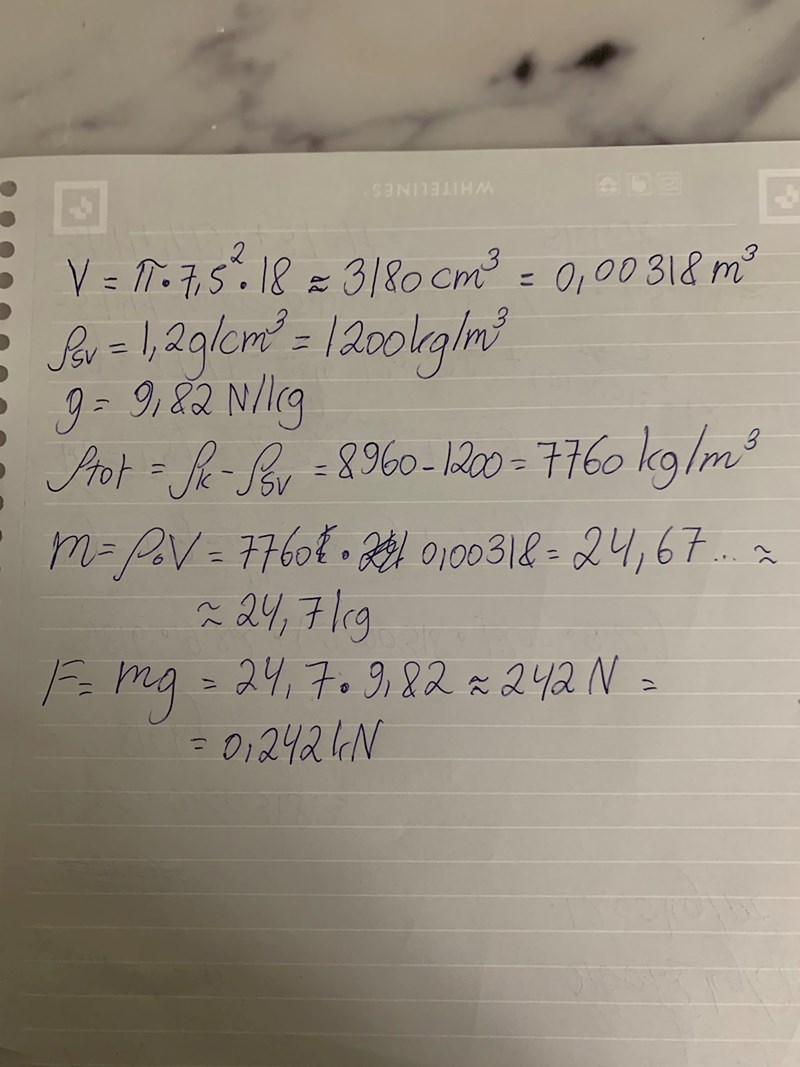 WHITELINES®
V = π · 7,5² · 18 ≈ 3180 cm³ = 0,00318 m³
ρsv = 1,2g/cm³ = 1200kg/m³
g = 9,82 N/kg
ρtot = ρk - ρsv = 8960 - 1200 = 7760 kg/m³
m = ρ·V = 7760 · 0,00318 = 24,67... ≈
≈ 24,7kg
F = mg = 24,7 · 9,82 ≈ 242 N =
= 0,242 kN